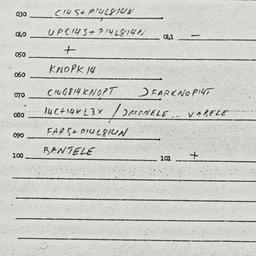 030 C14S+P14L814N
040 UPC14S+P14L814N 041 —
050 +
060 KNOPK14
070 C14G814KNOPT )FARKNOP14T
080 14C+14KL3X /)MONELE.. VARELE
090 FARS+D14L814N
100 BANTELE 101 +